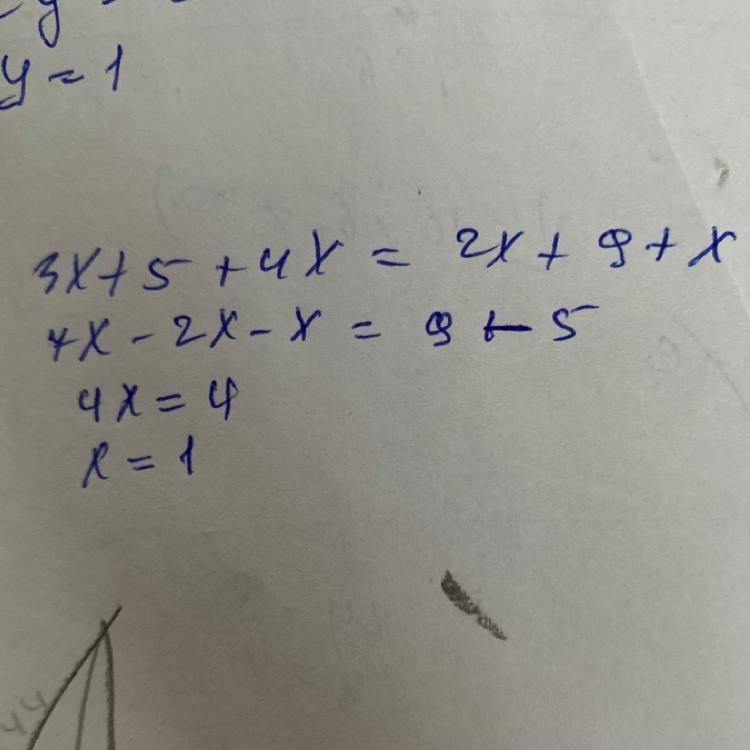 y = 1
3x + 5 + 4x = 2x + 9 + x
7x - 2x - x = 9 - 5
4x = 4
x = 1